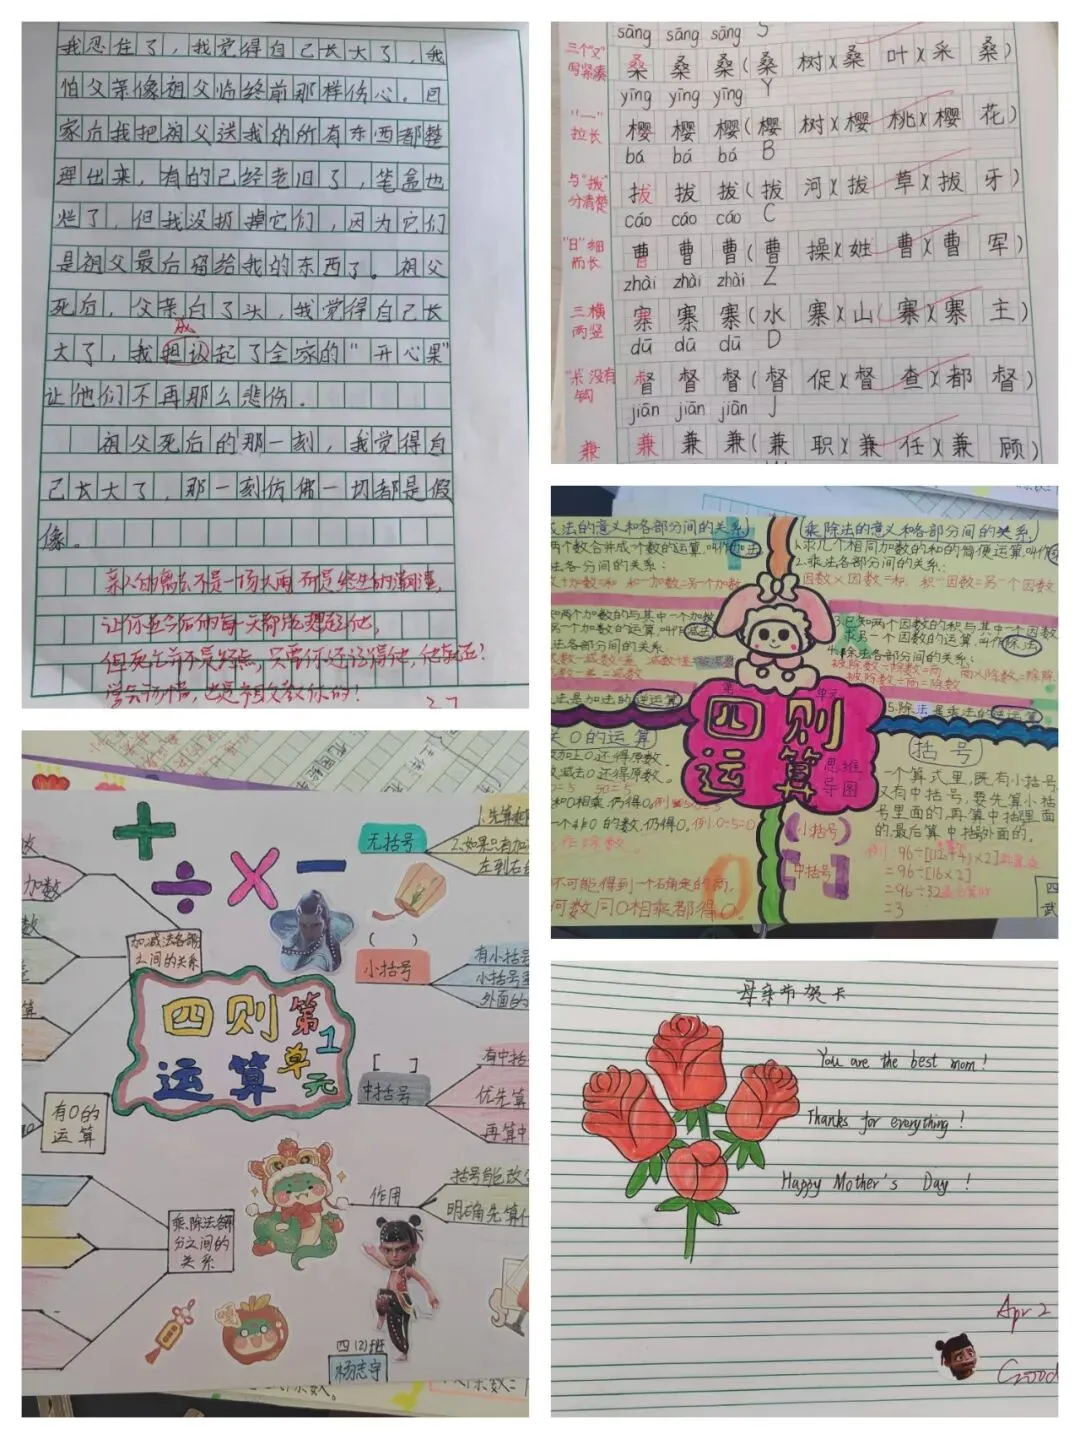 我忍住了，我觉得自己长大了，我
怕父亲像祖父临终前那样伤心。回
家后我把祖父送我的所有东西都整
理出来，有的已经老旧了，笔盖也
烂了，但我没扔掉它们，因为它们
是祖父最后留给我的东西了。祖父
死后，父亲白了头，我觉得自己长
成
大了，我担认起了全家的“开心果”
让他们不再那么悲伤.
祖父死后的那一刻，我觉得自
己长大了，那一刻仿佛一切都是假
像。
亲人的离去不是一场大雨 而是终生的潮湿，
让你在今后的每一天都能想起他，
但死亡并不是终点，只要你还记得他，他就在？
sāng sāng sāng S
三个“又”
写紧凑
桑 桑 桑(桑 树)(桑 叶)(采 桑)
yīng yīng yīng Y
“一”
拉长
樱 樱 樱(樱 树)(樱 桃)(樱 花)
bá bá bá B
与“拨”
分清楚
拔 拔 拔(拔 河)(拔 草)(拔 牙)
cáo cáo cáo C
“日”细
而长
曹 曹 曹(曹 操)(姓 曹)(曹 军)
zhài zhài zhài Z
三横
两竖
寨 寨 寨(水 寨)(山 寨)(寨 主)
dū dū dū D
“木”没有
钩
督 督 督(督 促)(督 查)(都 督)
jiān jiān jiān J
兼
兼 兼 兼(兼 职)(兼 任)(兼 顾)
法的意义和各部分间的关系
两个数合并成一个数的运算,叫作加法.
法各部分间的关系：
和一加数=另一个加数
知两个加数的与其中一个加数
另一个加数的运算,叫作减法
法各部分间的关系
法是加法的逆运算
0的运算
加上0还得原数.
减去0还得原数.
5-0=5
和0相乘,仍得0.
0的数,仍得0.例:0÷5=0
作除数.
不可能得到一个确定的商.
何数同0相乘都得0.
乘,除法的意义和各部分间的关系
1.求几个相同加数的和的简便运算,叫作
2.乘法各部分间的关系：
因数×因数=积 积÷因数=另一个因数
3.已知两个因数的积与其中一个因数
求另一个因数的运算,叫作除法
4.除法各部分间的关系：
被除数÷除数=商 商×除数=除
被除数÷商=除数
5.除法是乘法的逆运算
第 单元
四则
运算
思维
导图
(小括号)
[中括号]
括号
一个算式里,既有小括号
又有中括号,要先算小括
号里面的,再算中括号里面
的,最后算中括号外面的.
例：96÷[(12+4)×2]
=96÷[16×2]
=96÷32
=3
四
武
+ ÷ × −
无括号
1.先算乘
2.如果只有加
左到右
加数
数
算
加,减法各部
之间的关系
( )
小括号
有小括号
小括号里
外面的
四则 第1单元
运算
[ ]
中括号
有中括
优先算
再算中
有0的
运算
作用
括号能改变
明确先算什
乘,除法各部
分之间的
关系
四(2)班
杨志宇
母亲节贺卡
You are the best mom!
Thanks for everything!
Happy Mother's Day!
Apr 2
Good